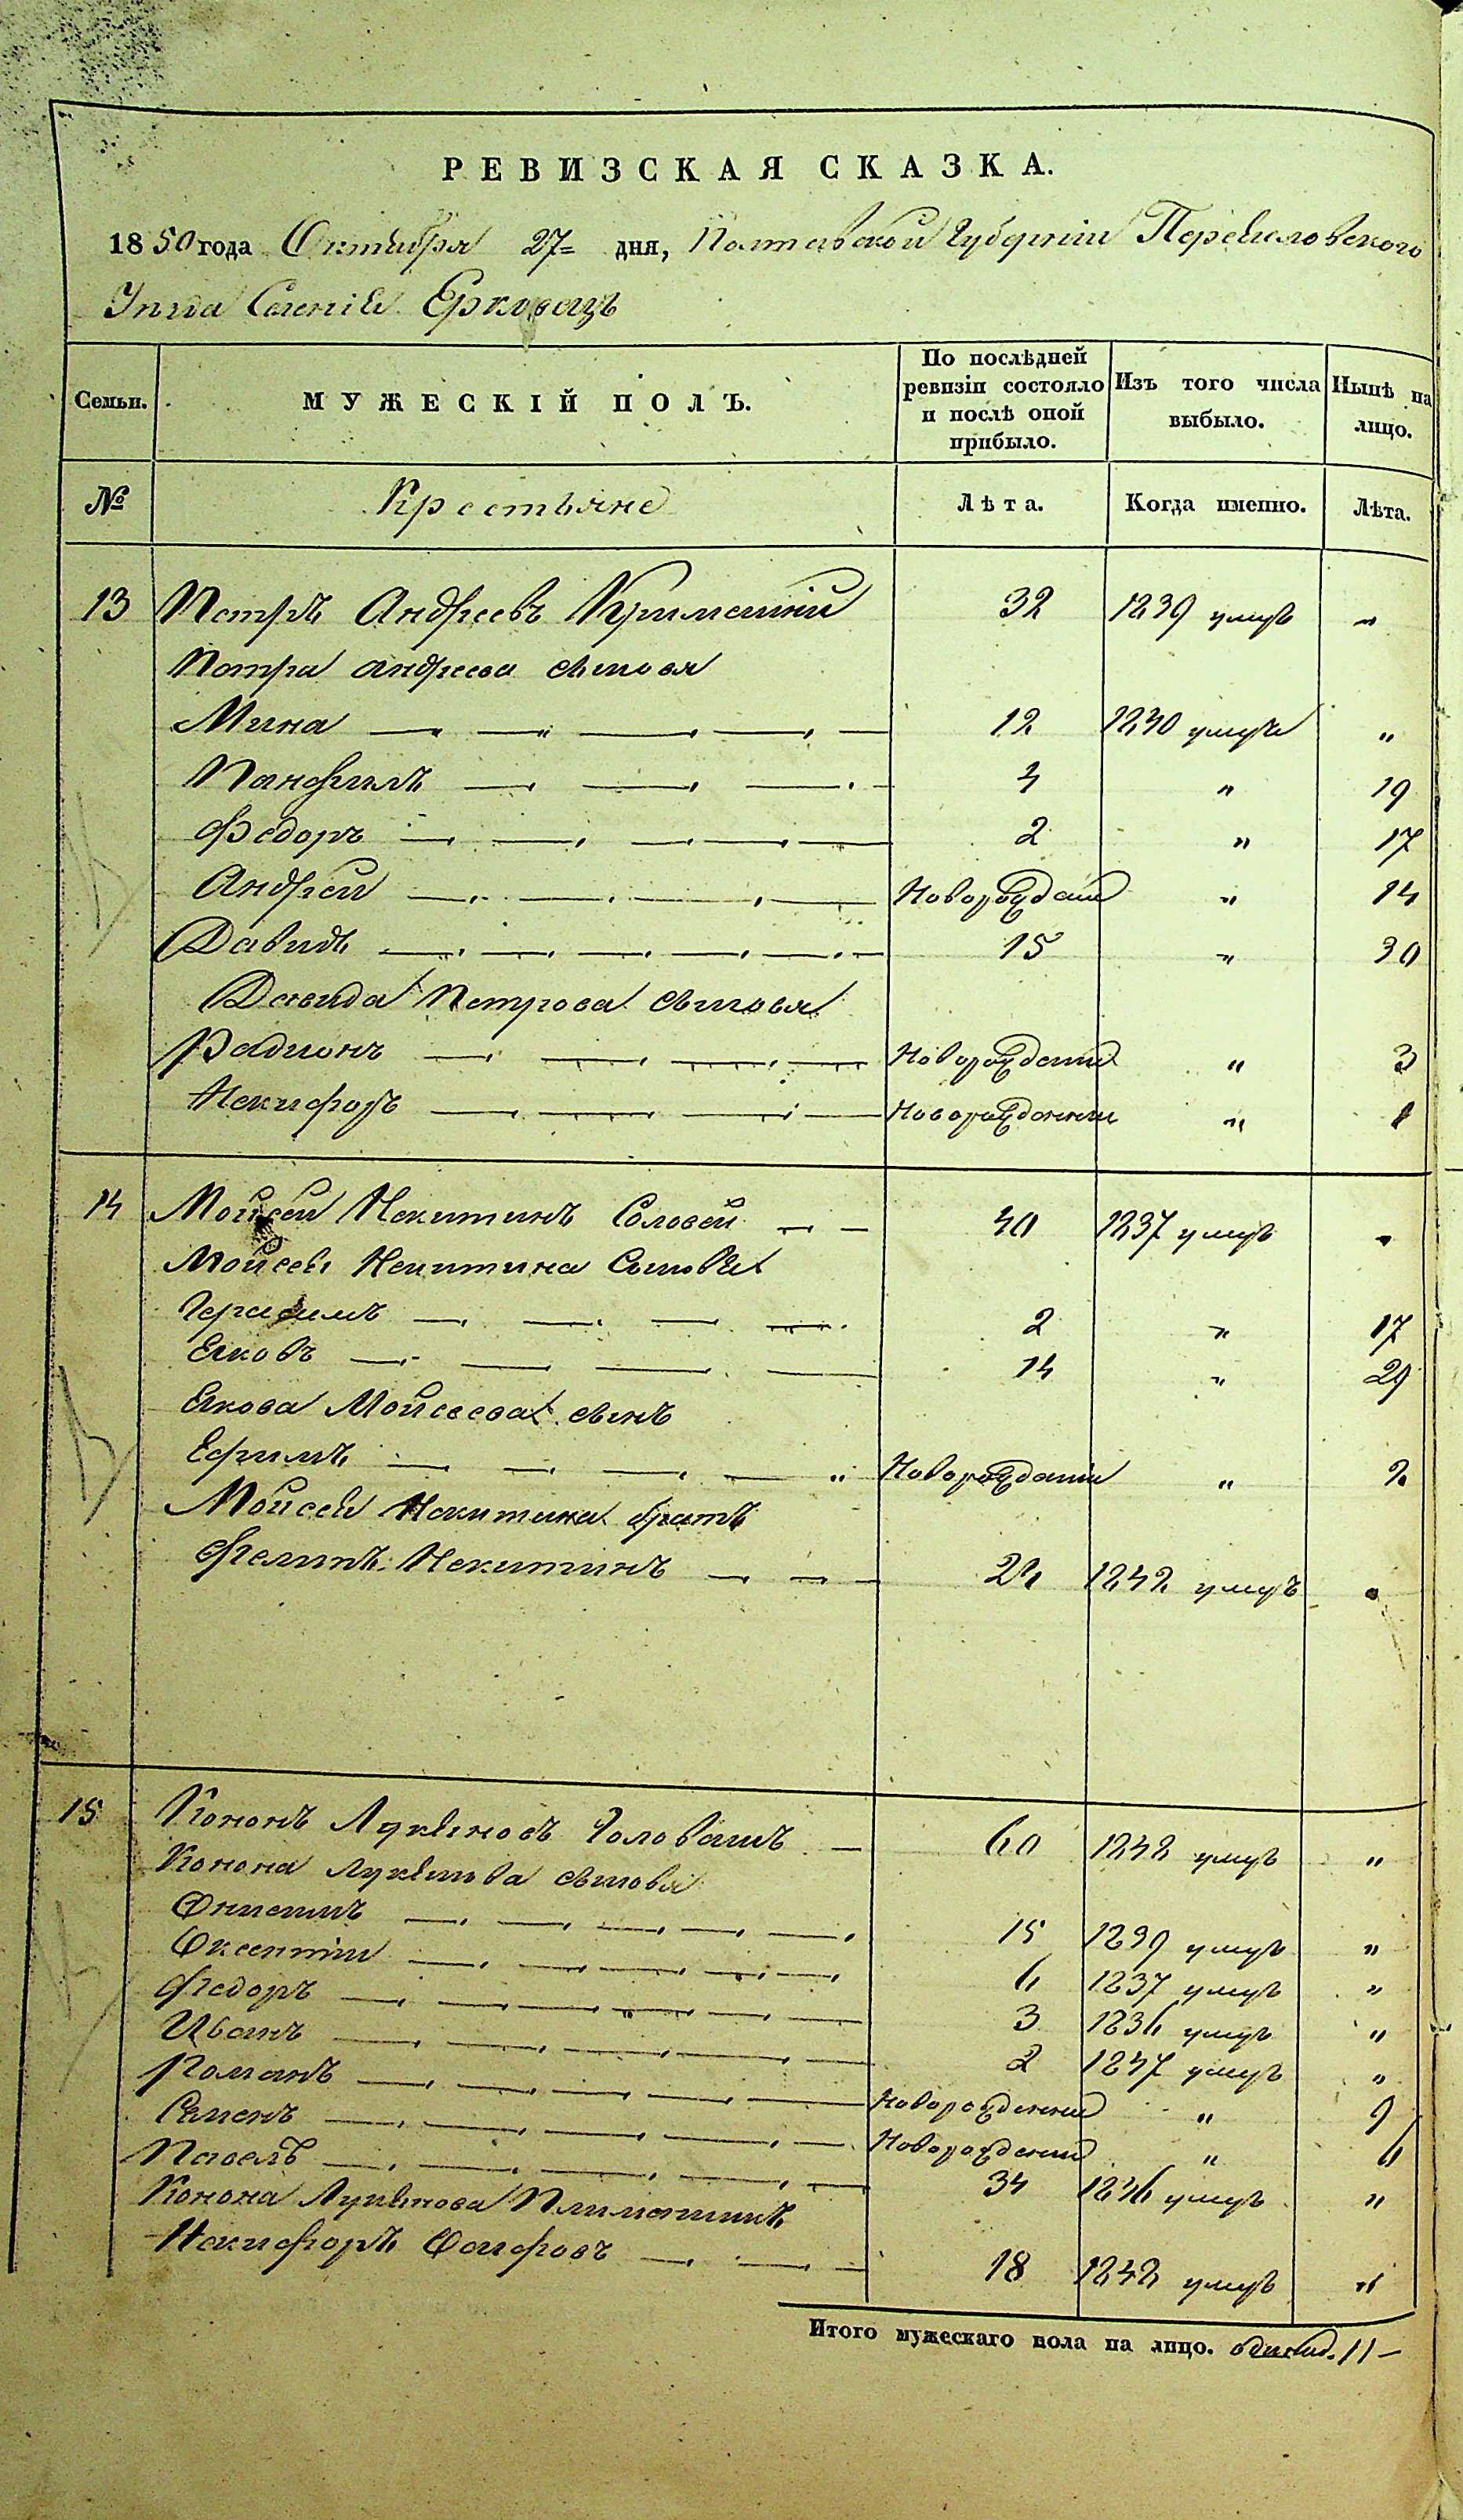 РЕВИЗСКАЯ СКАЗКА.
1850 года Октября 27 дня, Полтавской Губерніи Переяславского
Уезда Селенія Ерковецъ
Семьи. МУЖЕСКІЙ ПОЛЪ. По послѣдней ревизіи состояло и послѣ оной прибыло. Изъ того числа выбыло. Нынѣ на лицо.
№ Крестьяне Лѣта. Когда именно. Лѣта.
13 Петръ Андреевъ 32 1839 умеръ „
Петра Андреева сыновья
Мина 12 1840 умеръ „
Панфилъ 4 „ 19
Федоръ 2 „ 17
Андрей Новорожденій „ 14
Давидъ 15 „ 30
Давида Петрова сыновья
Радионъ Новорожденій „ 3
Некифоръ Новорожденный „ 1
14 Мойсей Некитинъ Соловей 40 1837 умеръ „
Мойсея Некитина Сыновья
Герасимъ 2 „ 17
Яковъ 14 „ 29
Якова Мойсеева сынъ
Ефимъ „ Новорожденій „ 2
Мойсея Некитина братъ
Филипъ Некитинъ 24 1842 умеръ „
15 Кононъ Лукяновъ Головашъ 60 1842 умеръ „
Конона Лукянова сыновья
Онисимъ 15 1839 умеръ „
Оксентій 6 1837 умеръ „
Федоръ 3 1836 умеръ „
Иванъ 2 1847 умеръ „
Романъ Новорожденный „ 9
Семенъ Новорожденный „ 6
Павелъ 34 1846 умеръ „
Конона Лукянова Племянникъ
Некифоръ 18 1842 умеръ „
Итого мужескаго пола на лицо. 11